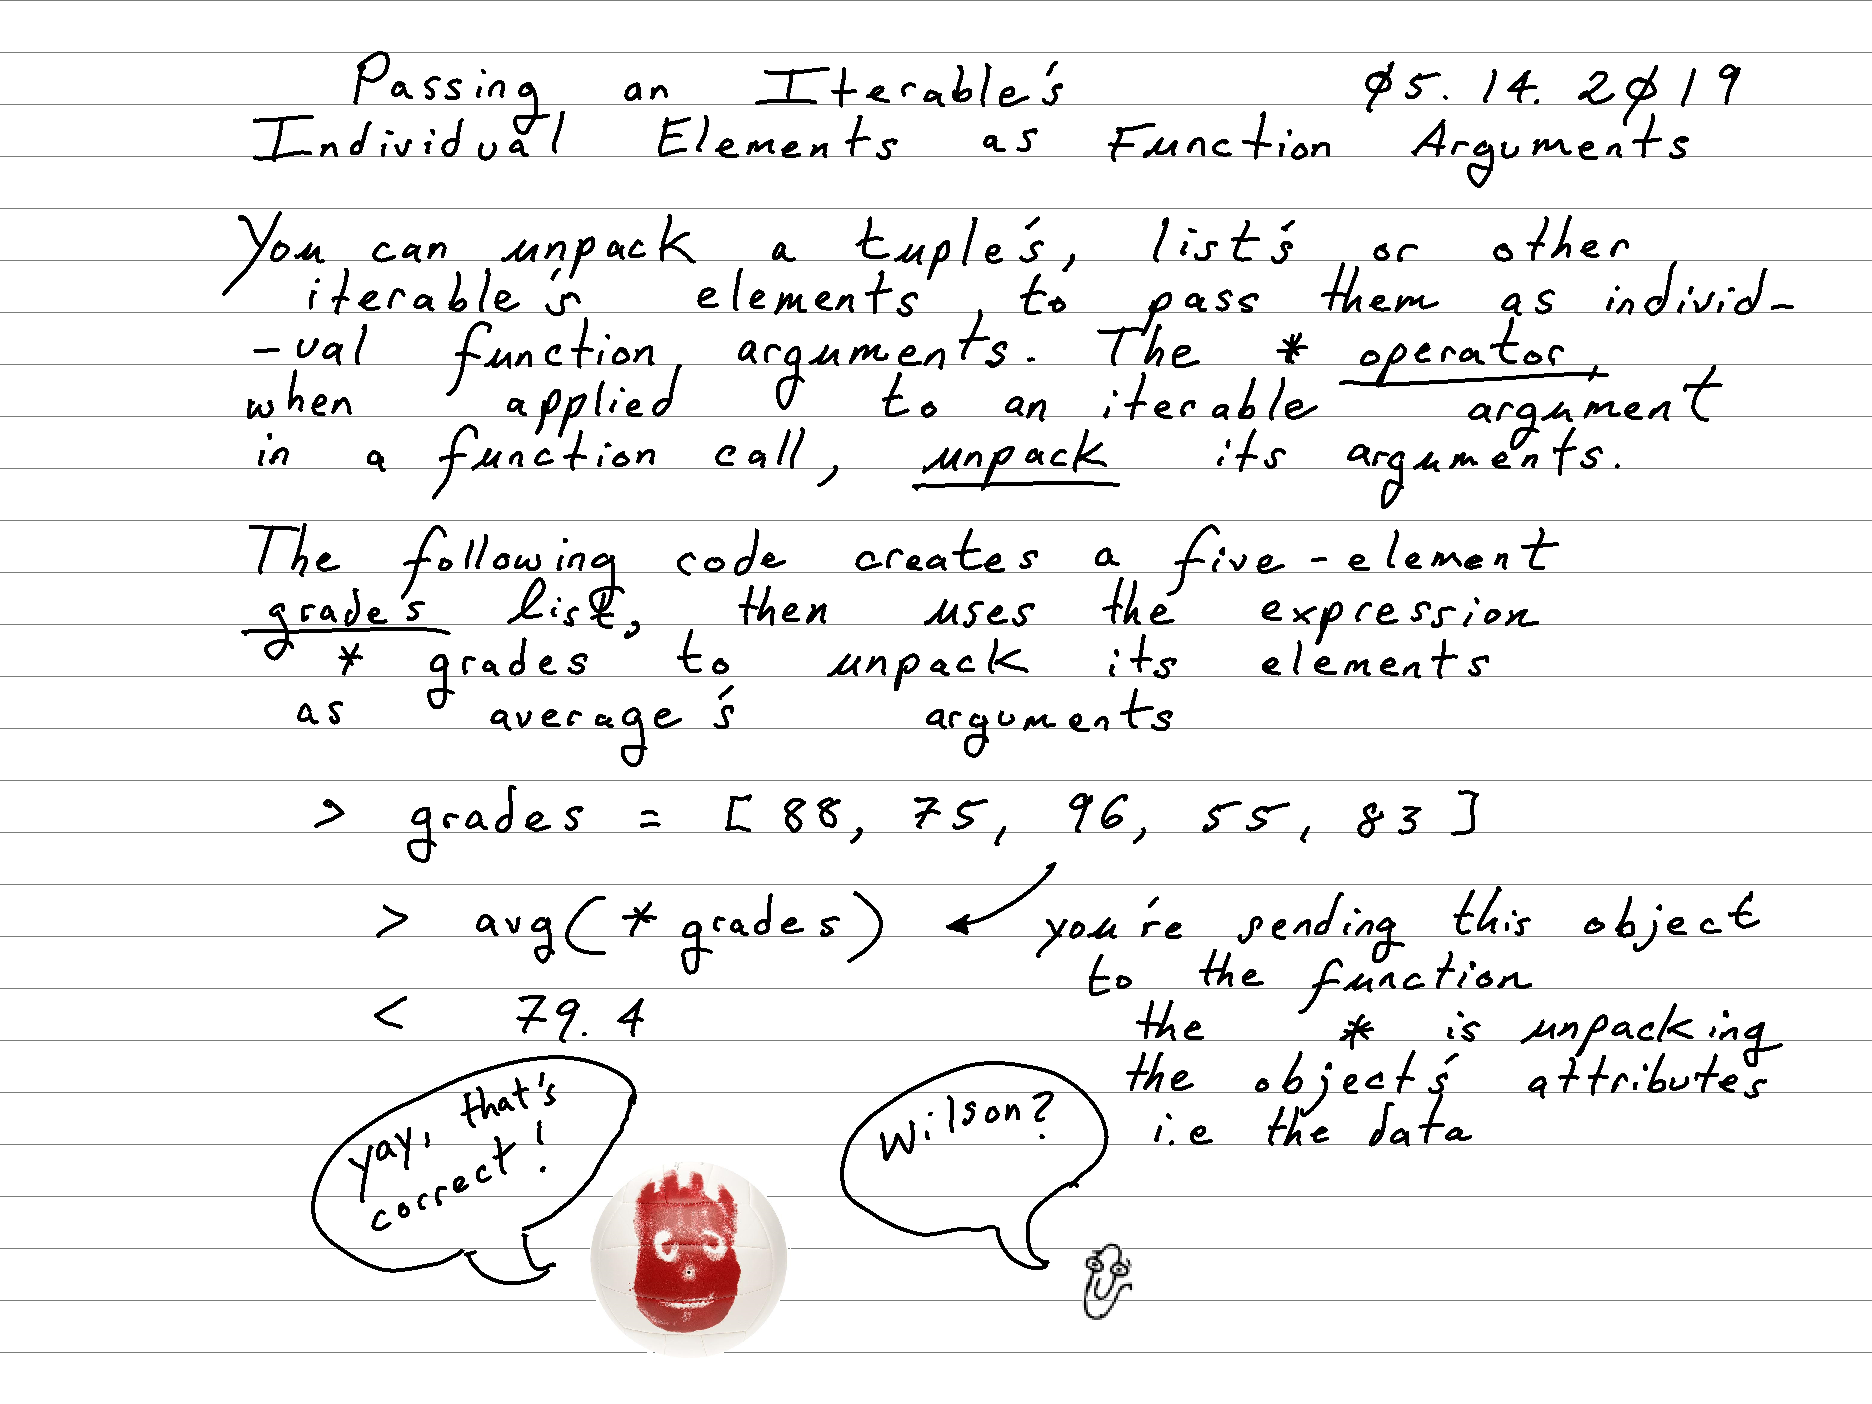 Passing an Iterable's 05.14.2019
Individual Elements as Function Arguments
You can unpack a tuple's, list's or other
iterable's elements to pass them as individ-
-ual function arguments. The * operator,
when applied to an iterable argument
in a function call, unpack its arguments.
The following code creates a five-element
grades list, then uses the expression
* grades to unpack its elements
as average's arguments
> grades = [ 88, 75, 96, 55, 83 ]
> avg(* grades) you're sending this object
to the function
< 79.4 the * is unpacking
the object's attributes
i.e the data
yay, that's
correct!
Wilson?